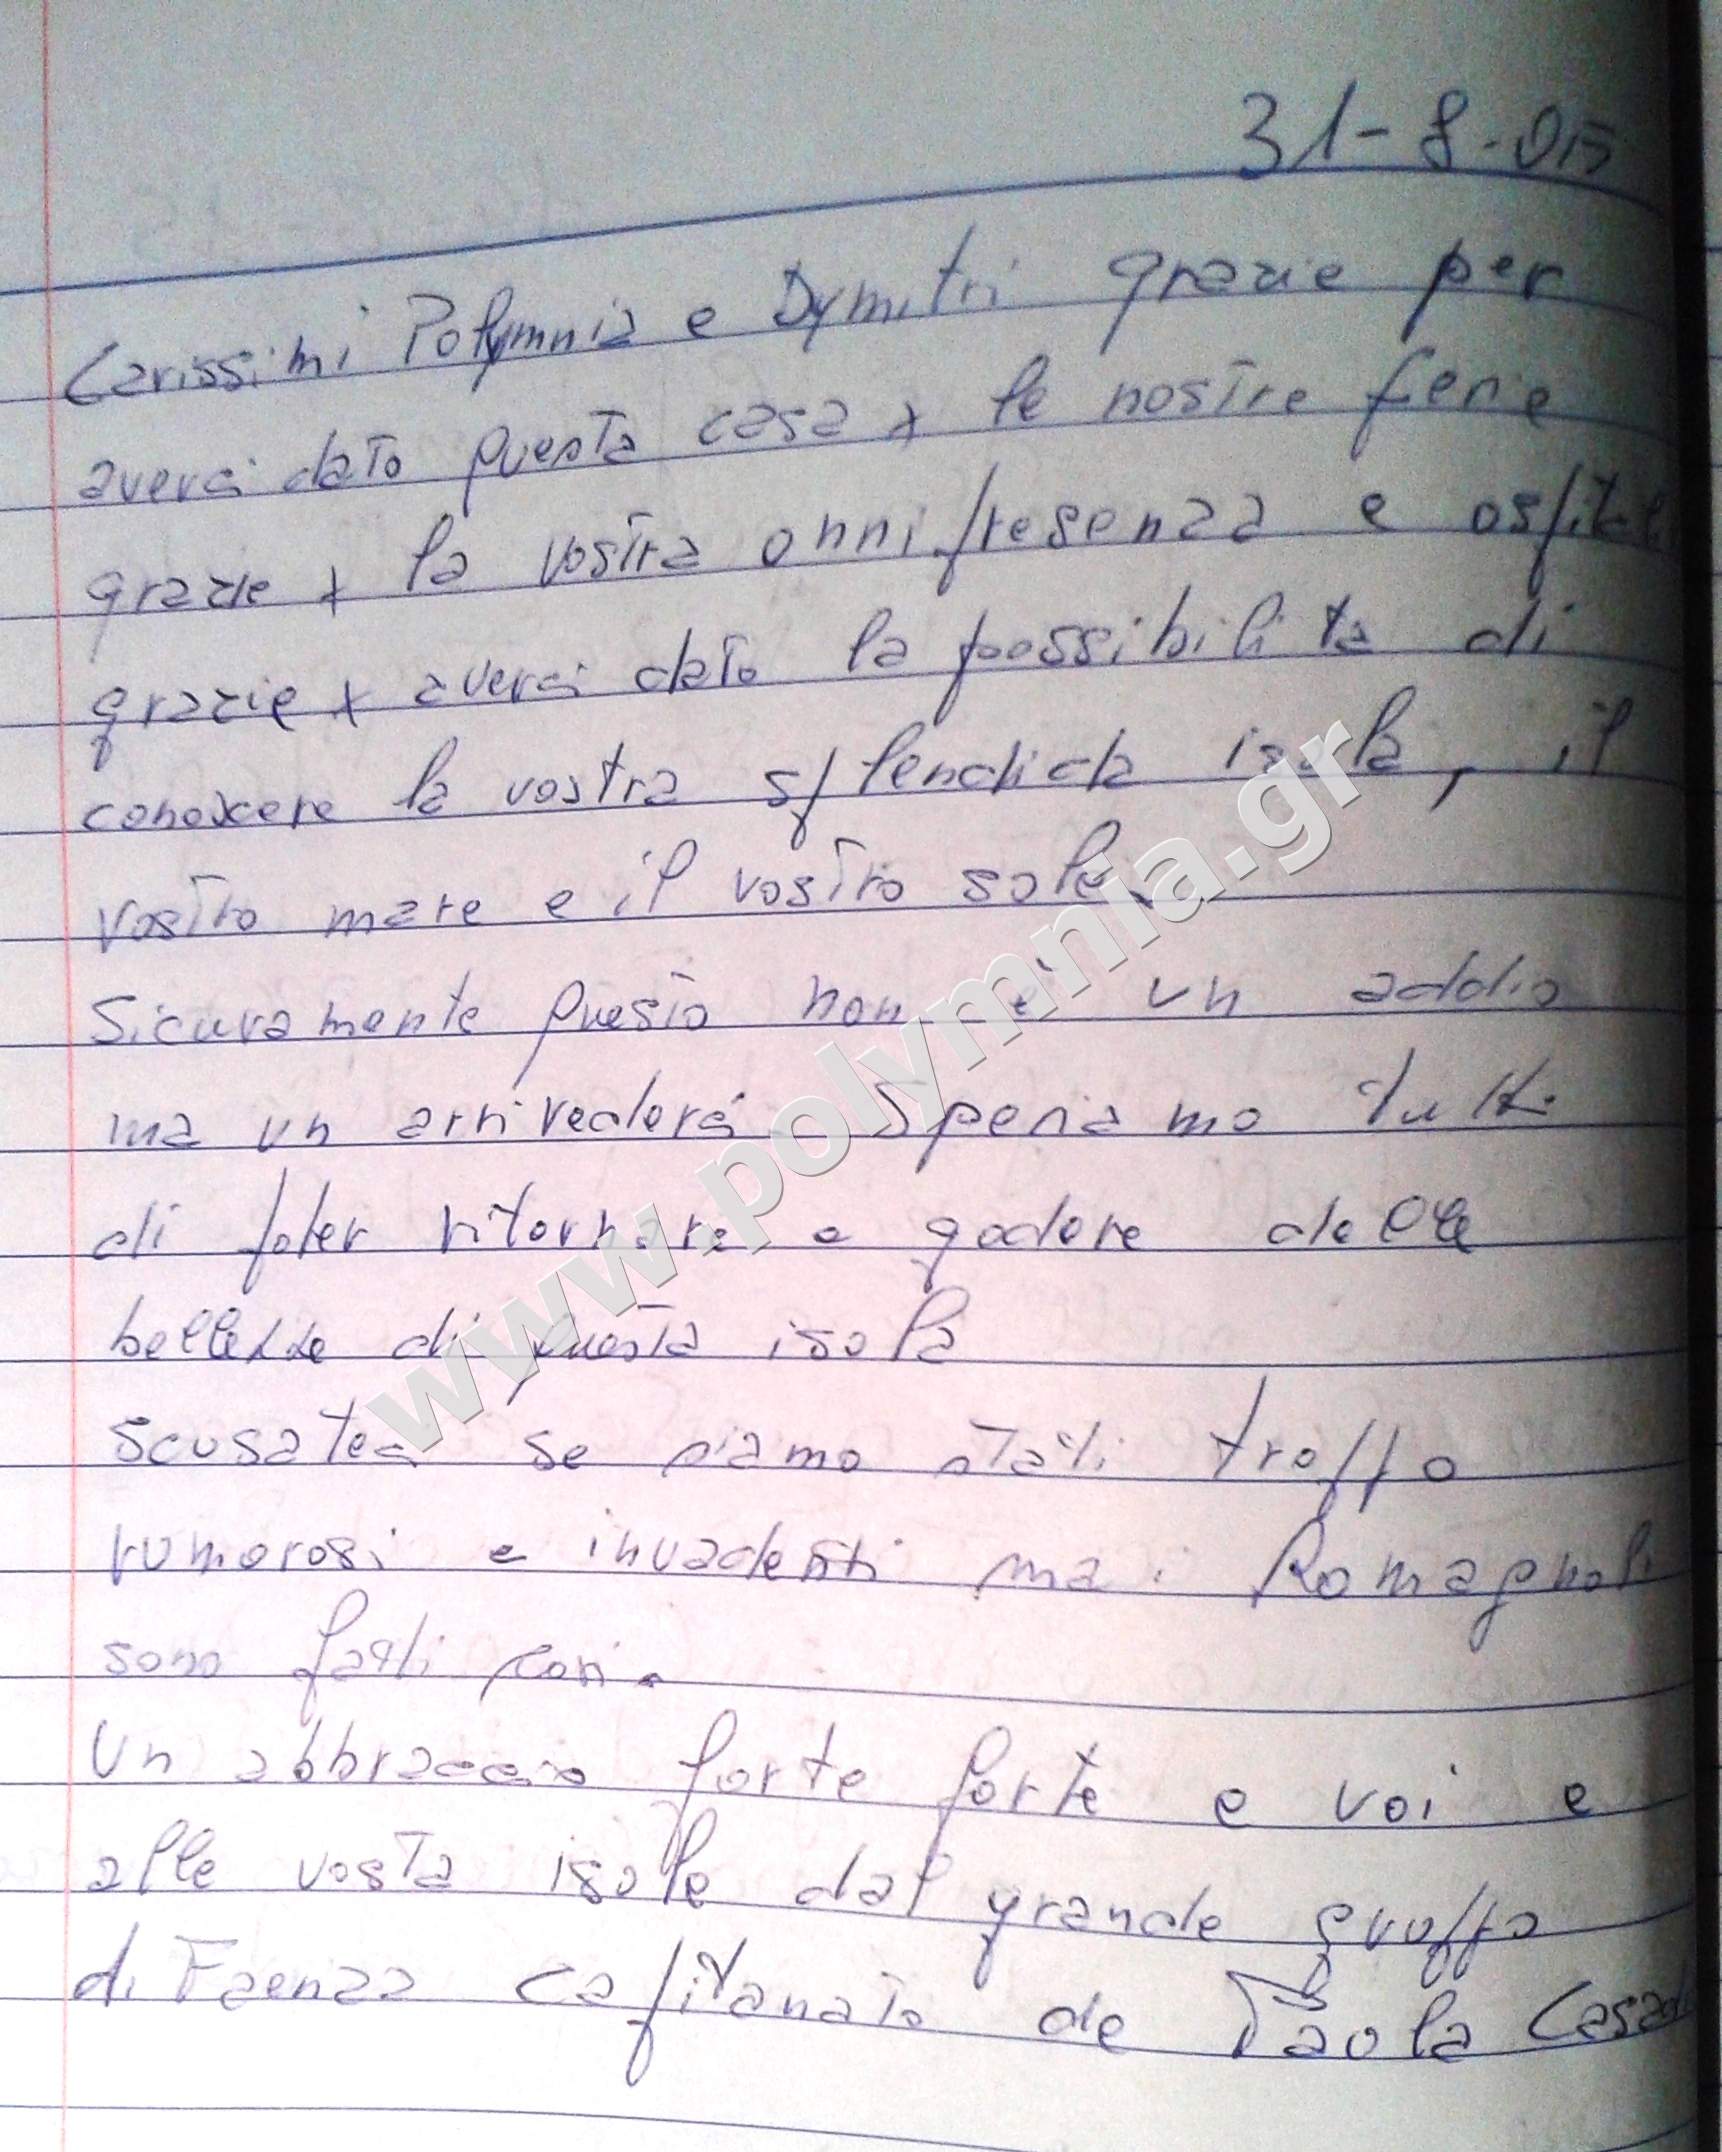 31-8-015
Carissimi Polymnia e Dymitri grazie per
averci dato questa casa x le nostre ferie
grazie x la vostra onnipresenza e
grazie x averci dato la possibilita di
conoscere la vostra splendida isola, il
vostro mare e il vostro sole.
Sicuramente questo non è un addio
ma un arrivederci Speriamo tutti
di poter ritornare e godere delle
bellezze di questa isola
scusateci se siamo stati troppo
rumorosi e invadenti ma i Romagnoli
sono fatti così.
Un abbraccio forte forte a voi e
alle vosta isole dal grande gruppo
di Faenza capitanato da Paola
www.polymnia.gr